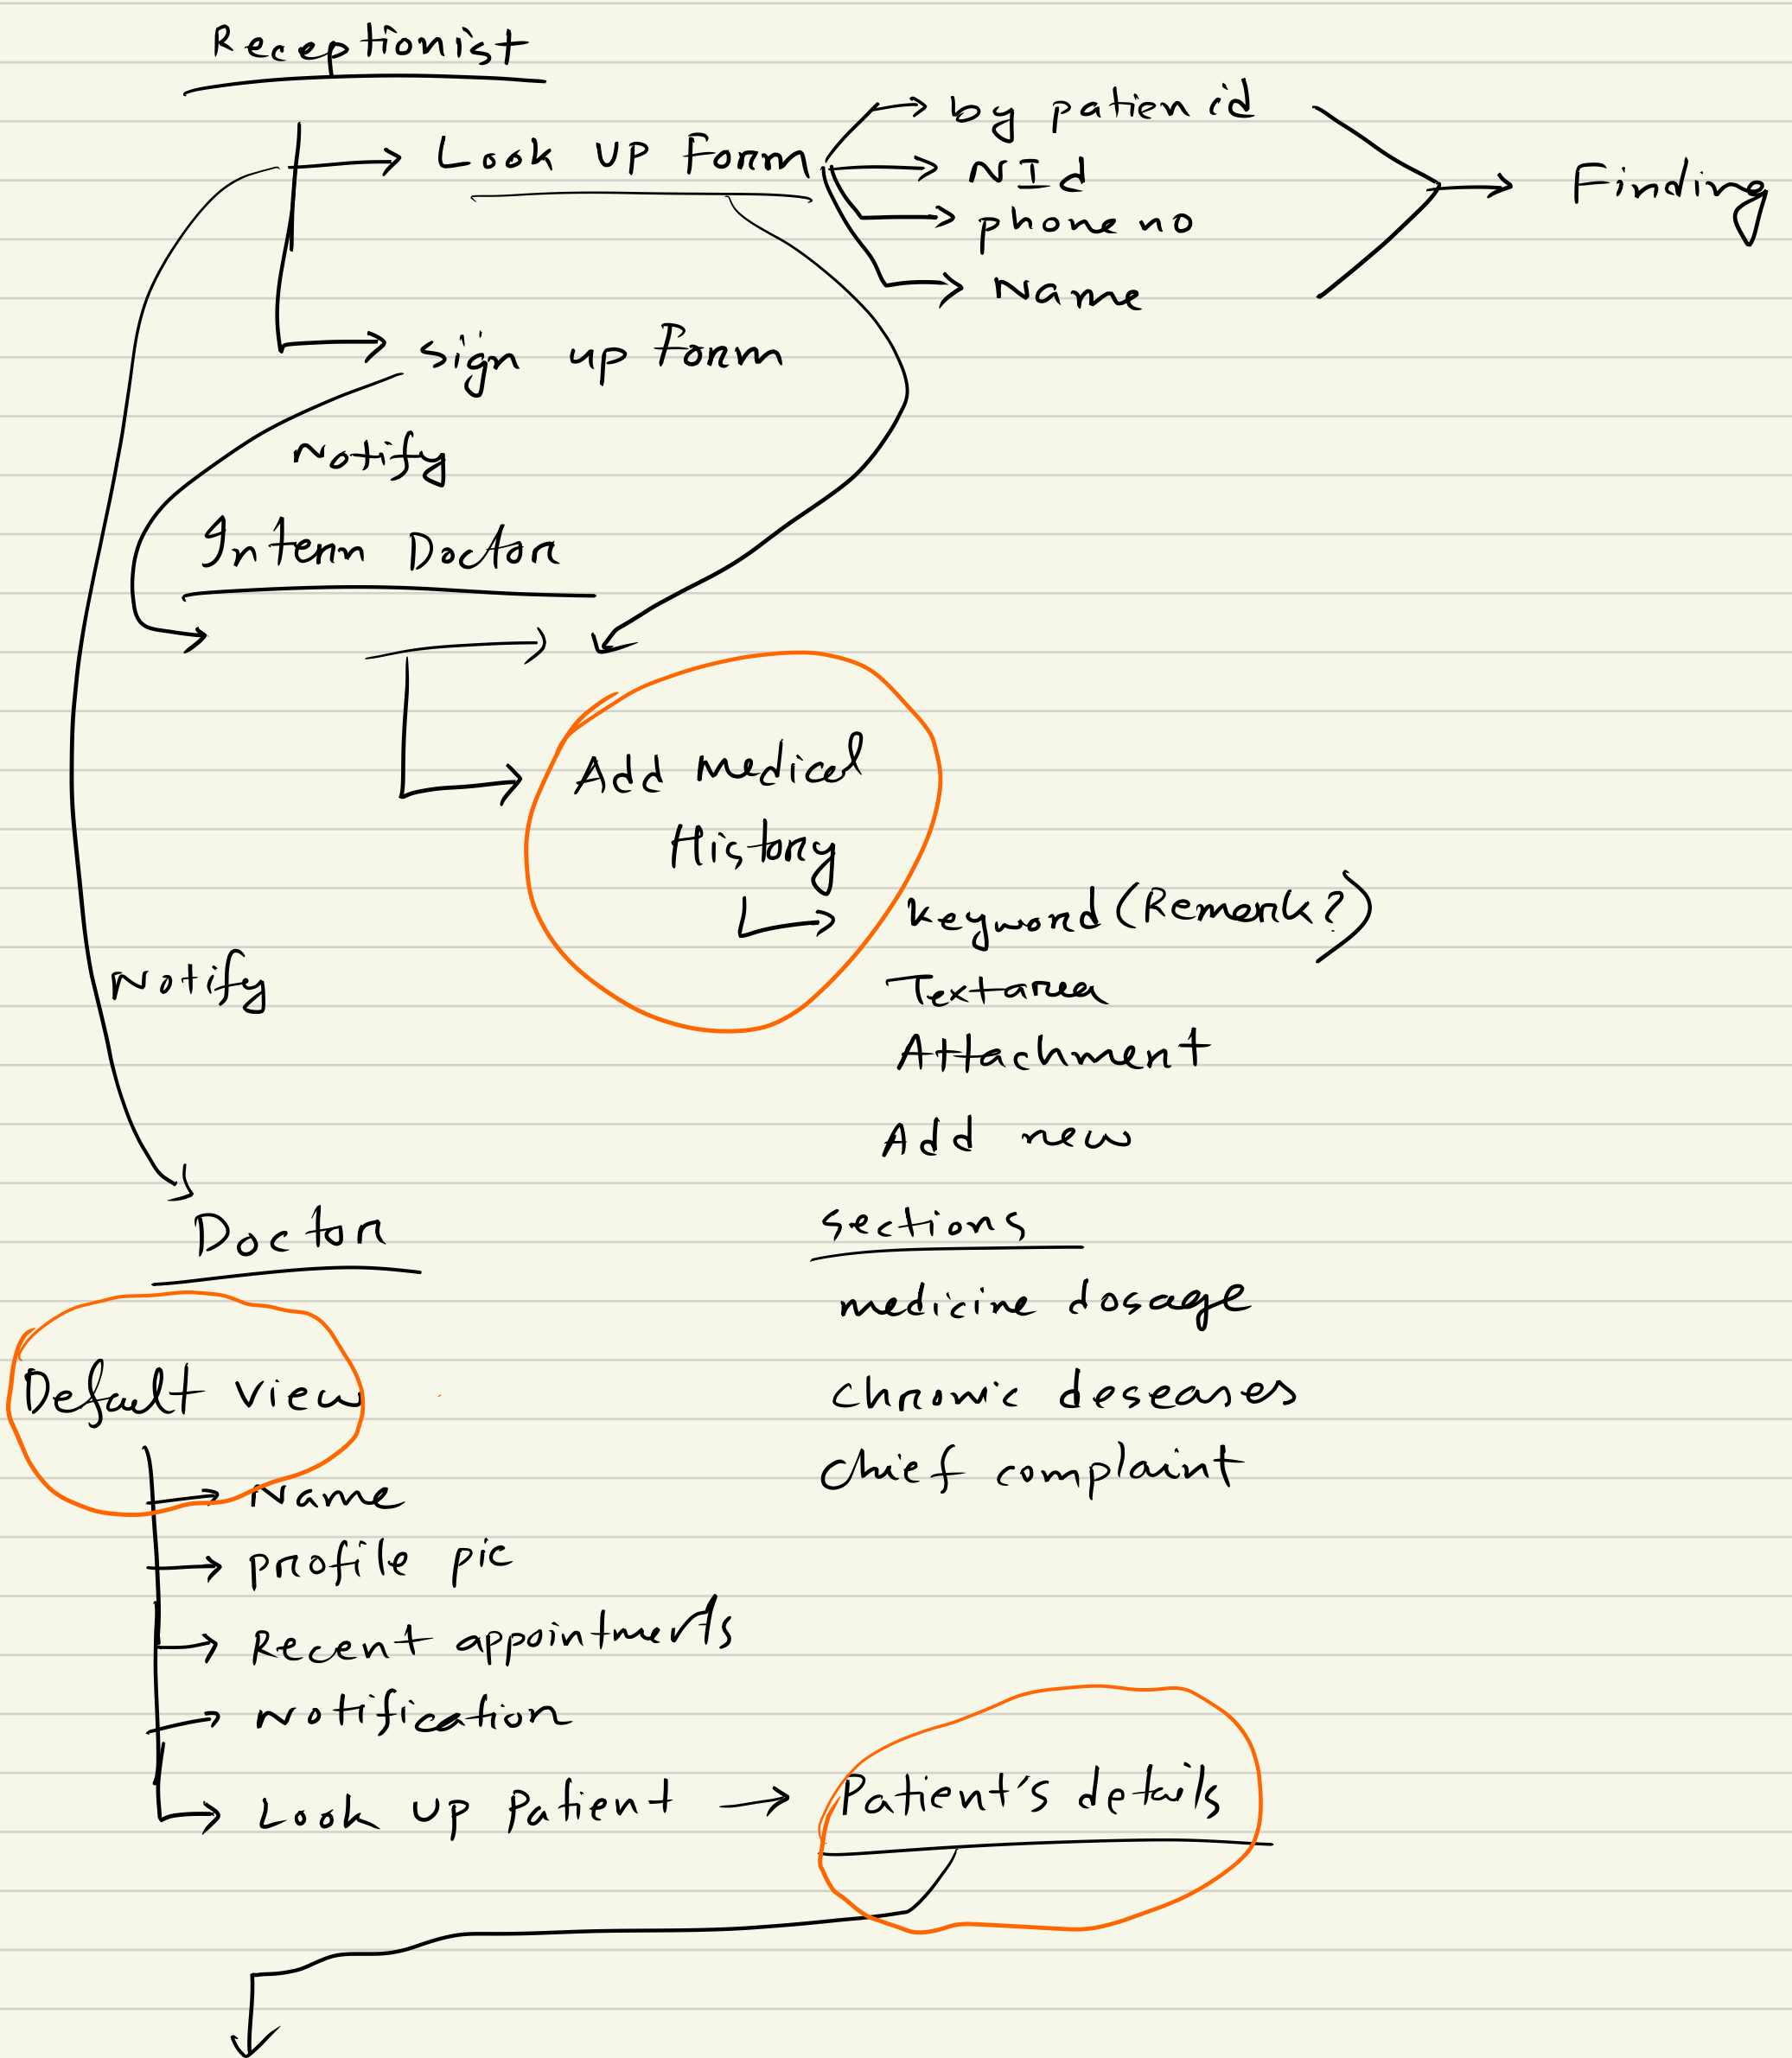 Receptionist
Look up form
by patien id
NId
phone no
Name
Finding
sign up Form
Notify
Intern Doctor
Add medical
History
Keyword (Remark?)
Textarea
Attachment
Add new
Notify
Doctor
sections
medicine dosage
chronic deseases
chief complaint
Default view
Name
profile pic
Recent appointments
Notification
Look up Patient
Patient's details